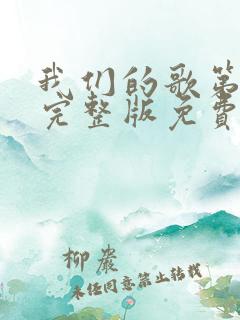 我们的歌第
完整版免费
柳岩
未经同意禁止转载